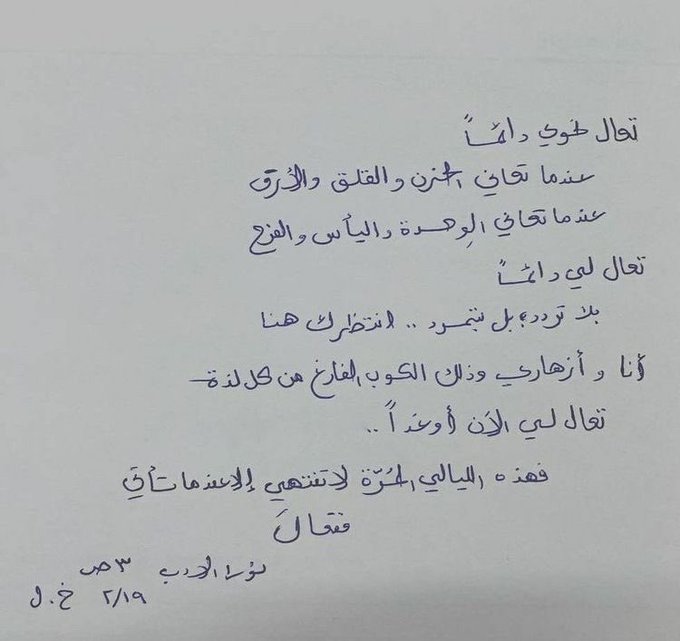 تعال نحوي دائماً
عندما تعاني الحزن والقلق والأرق
عندما تعاني الوِحدة واليأس والفزع
تعال لي دائماً
بلا تردد، بل بتمرد .. انتظرك هنا
أنا و أزهاري وذلك الكوب الفارغ من كل لذة
تعال لي الآن أو غداً ..
فهذه الليالي المُرّة لا تنتهي إلا عندما تأتي
فتعالَ
الادب ٣ ص
٢/١٩ خ . ل